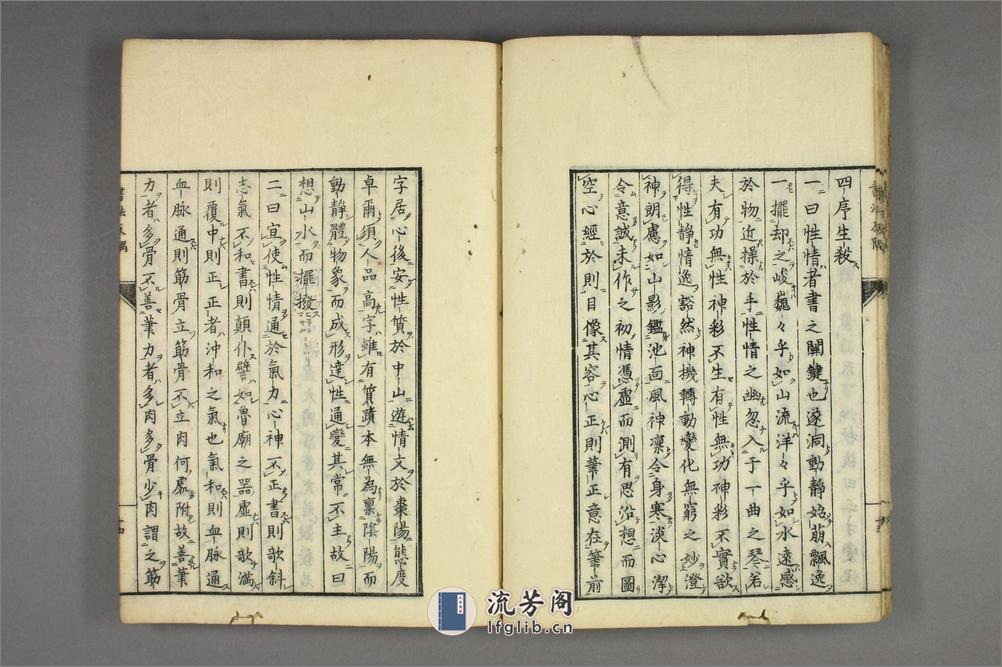 四序生殺
一曰性情者書之關鍵也遂洞動静始萌飄逸
一擺却之峻巍々乎如山流洋々乎如水遠感
於物近操於手性情之幽忽入于一曲之琴若
夫有功無性神彩不生有性無功神彩不實欲
得性静情逸豁然神機轉動變化無窮之妙澄
神朗慮如山影鑑池面風神凛令身寒淡心潔
令意誠未作之初情憑虚而測有思沿想而圖
空心經於則目像其容心正則筆正意在筆前
字居心後安性質於中山遊情文於棗陽態度
卓爾須人品高字雖有質蹟本無為稟陰陽而
動静體物象而成形達性通變其常不主故曰
想山水而擺撥
二曰宜使性情通於氣力心神不正書則歌斜
志氣不和書則顛仆譬如魯廟之器虚則歌滿
則覆中則正正者沖和之氣也氣和則血脉通
血脉通則筋骨立筋骨不立肉何處附故善筆
力者多骨不善筆力者多肉多骨少肉謂之筋
流芳阁
lfglib.cn